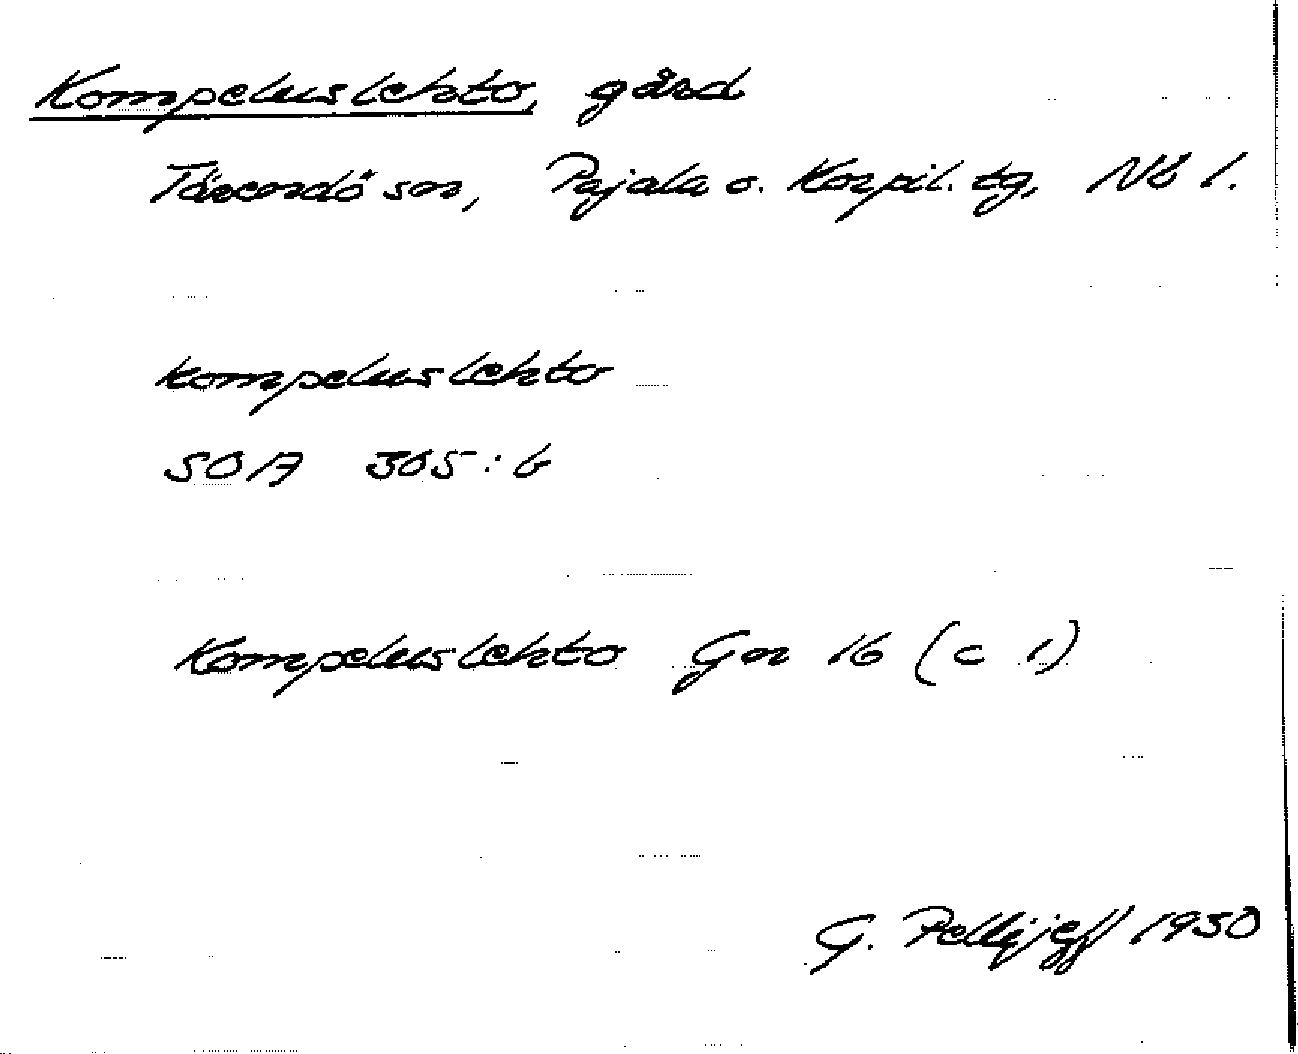 Kompeluslehto, gård
Tärendö sn, Pajala o. Korpil. tg, Nb l.
Kompeluslehto
SOA 305:6
Kompeluslehto Gr 16 (c 1)
G. Pellijeff 1950